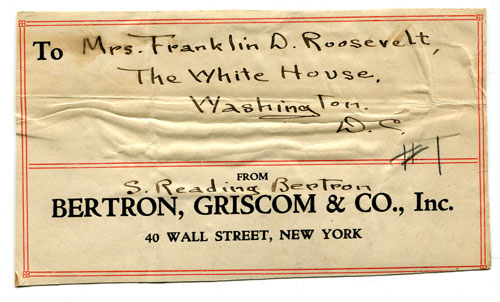 To Mrs. Franklin D. Roosevelt,
The White House,
Washington.
D.C.
#1
FROM
S. Reading Bertron
BERTRON, GRISCOM & CO., Inc.
40 WALL STREET, NEW YORK